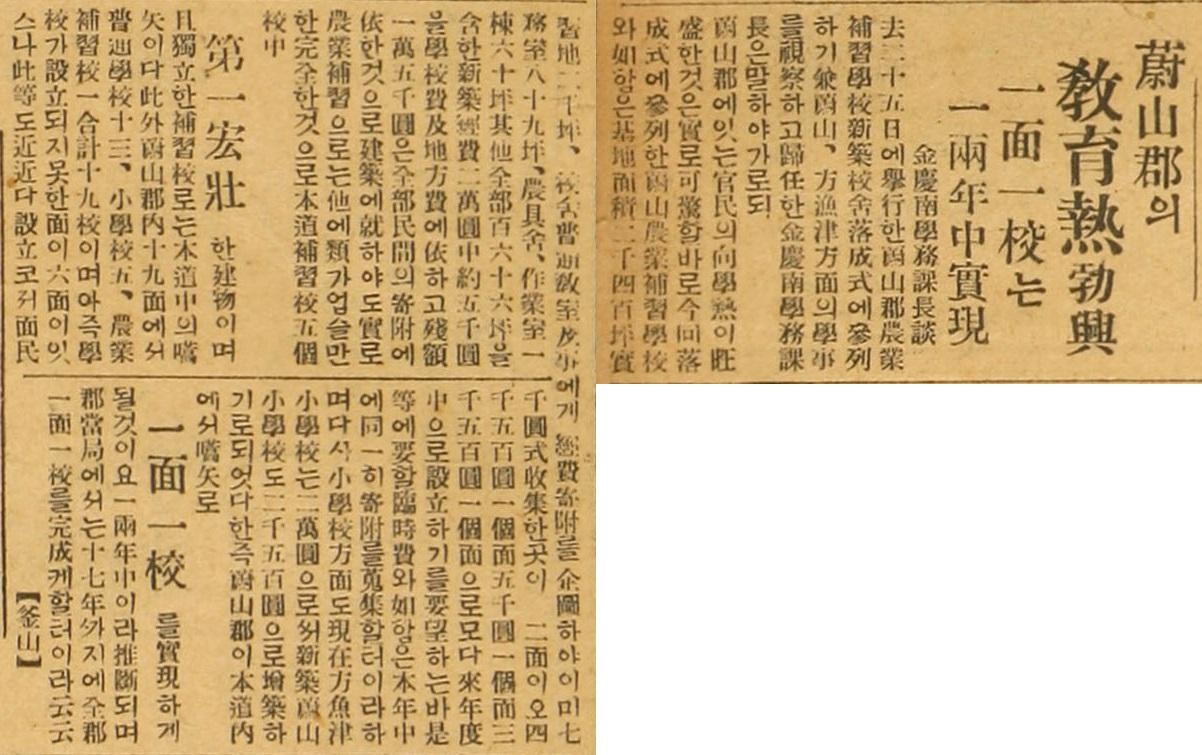 蔚山郡의
敎育熱勃興
一面一校는
一兩年中實現
金慶南學務課長談
去二十五日에擧行한蔚山郡農業
補習學校新築校舍落成式에參列
하기兼蔚山、方漁津方面의學事
를視察하고歸任한金慶南學務課
長은말하야가로되
蔚山郡에잇는官民의向學熱이旺
盛한것은實로可驚할바로今回落
成式에參列한蔚山農業補習學校
와如함은基地面積二千四百坪實
習地二千坪、校舍普通敎室及事
務室八十九坪、農具舍、作業室一
棟六十坪其他全部百六十六坪을
含한新築經費二萬圓中約五千圓
을學校費及地方費에依하고殘額
一萬五千圓은全部民間의寄附에
依한것으로建築에就하야도實로
農業補習으로는他에類가업슬만
한完全한것으로本道補習校五個
校中
第一宏壯 한建物이며
且獨立한補習校로는本道中의嚆
矢이다此外蔚山郡內十九面에서
普通學校十三、小學校五、農業
補習校一合計十九校이며아즉學
校가設立되지못한面이六面이잇
스나此等도近近다設立코저面民
에게 經費寄附를企圖하야이미七
千圓式收集한곳이 二面이오四
千五百圓一個面五千圓一個面三
千五百圓一個面으로모다來年度
中으로設立하기를要望하는바是
等에要할臨時費와如함은本年中
에同一히寄附를蒐集할터이라하
며다시小學校方面도現在方魚津
小學校는二萬圓으로써新築蔚山
小學校도二千五百圓으로增築하
기로되엿다한즉蔚山郡이本道內
에서嚆矢로
一面一校 를實現하게
될것이요一兩年中이라推斷되며
郡當局에서는十七年까지에全郡
一面一校를完成케할터이라云云
【釜山】